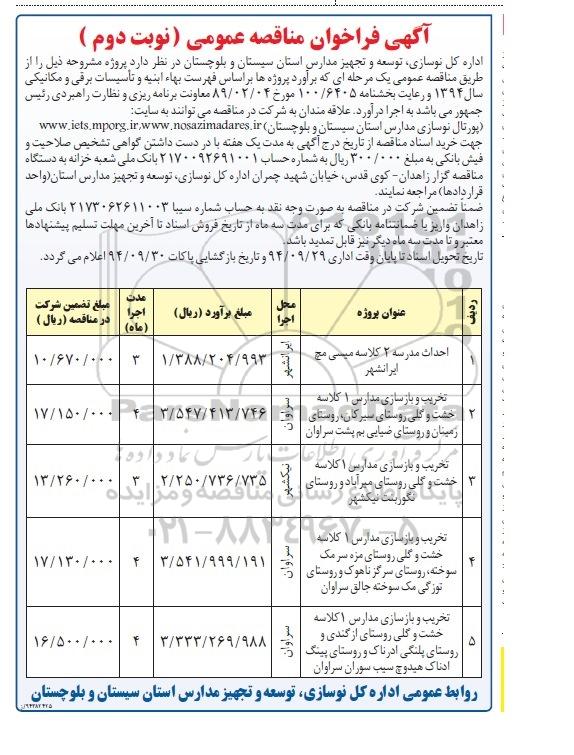 آگهی فراخوان مناقصه عمومی (نوبت دوم)
اداره کل نوسازی، توسعه و تجهیز مدارس استان سیستان و بلوچستان در نظر دارد پروژه مشروحه ذیل را از
طریق مناقصه عمومی یک مرحله ای که برآورد پروژه ها براساس فهرست بهاء ابنیه و تأسیسات برقی و مکانیکی
سال ۱۳۹۴ و رعایت بخشنامه ۱۰۰/۶۴۰۵ مورخ ۸۹/۰۲/۰۴ معاونت برنامه ریزی و نظارت راهبردی رئیس
جمهور می باشد به اجرا درآورد. علاقه مندان به شرکت در مناقصه می توانند به سایت:
(پورتال نوسازی مدارس استان سیستان و بلوچستان) www.iets.mporg.ir,www.nosazimadares.ir
جهت خرید اسناد مناقصه از تاریخ درج آگهی به مدت یک هفته با در دست داشتن گواهی تشخیص صلاحیت و
فیش بانکی به مبلغ ۳۰۰/۰۰۰ ریال به شماره حساب ۲۱۷۰۰۹۲۶۹۱۰۰۱ بانک ملی شعبه خزانه به دستگاه
مناقصه گزار زاهدان- کوی قدس، خیابان شهید چمران اداره کل نوسازی، توسعه و تجهیز مدارس استان(واحد
قراردادها) مراجعه نمایند.
ضمناً تضمین شرکت در مناقصه به صورت وجه نقد به حساب شماره سیبا ۲۱۷۳۰۶۲۶۱۱۰۰۳ بانک ملی
زاهدان واریز یا ضمانتنامه بانکی که برای مدت سه ماه از تاریخ فروش اسناد تا آخرین مهلت تسلیم پیشنهادها
معتبر و تا مدت سه ماه دیگر نیز قابل تمدید باشد.
تاریخ تحویل اسناد تا پایان وقت اداری ۹۴/۰۹/۲۹ و تاریخ بازگشایی پاکات ۹۴/۰۹/۳۰ اعلام می گردد.
ردیف عنوان پروژه محل اجرا مبلغ برآورد (ریال) مدت اجرا (ماه) مبلغ تضمین شرکت در مناقصه (ریال)
۱ احداث مدرسه ۲ کلاسه میسی مچ ایرانشهر ایرانشهر ۱/۳۸۸/۲۰۴/۹۹۳ ۳ ۱۰/۶۷۰/۰۰۰
۲ تخریب و بازسازی مدارس ۱ کلاسه خشت و گلی روستای سیرکان، روستای زمینان و روستای ضیایی بم پشت سراوان سراوان ۳/۵۴۷/۴۱۳/۷۴۶ ۴ ۱۷/۱۵۰/۰۰۰
۳ تخریب و بازسازی مدارس ۱ کلاسه خشت و گلی روستای میرآباد و روستای نگور بنت نیکشهر نیکشهر ۲/۲۵۰/۷۳۶/۷۳۵ ۳ ۱۳/۲۶۰/۰۰۰
۴ تخریب و بازسازی مدارس ۱ کلاسه خشت و گلی روستای مزه سر مک سوخته، روستای سرگز ناهوک و روستای توزگی مک سوخته جالق سراوان سراوان ۳/۵۴۱/۹۹۹/۱۹۱ ۴ ۱۷/۱۳۰/۰۰۰
۵ تخریب و بازسازی مدارس ۱ کلاسه خشت و گلی روستای ازگندی و روستای پلنگی ادرناک و روستای پینگ ادناک هیدوچ سیب سوران سراوان سراوان ۳/۳۳۳/۲۶۹/۹۸۸ ۴ ۱۶/۵۰۰/۰۰۰
روابط عمومی اداره کل نوسازی، توسعه و تجهیز مدارس استان سیستان و بلوچستان
ParsNamadData
پایگاه اطلاع رسانی مناقصه و مزایده
۰۲۱-۸۸۳۴۹۶۷۰-۵